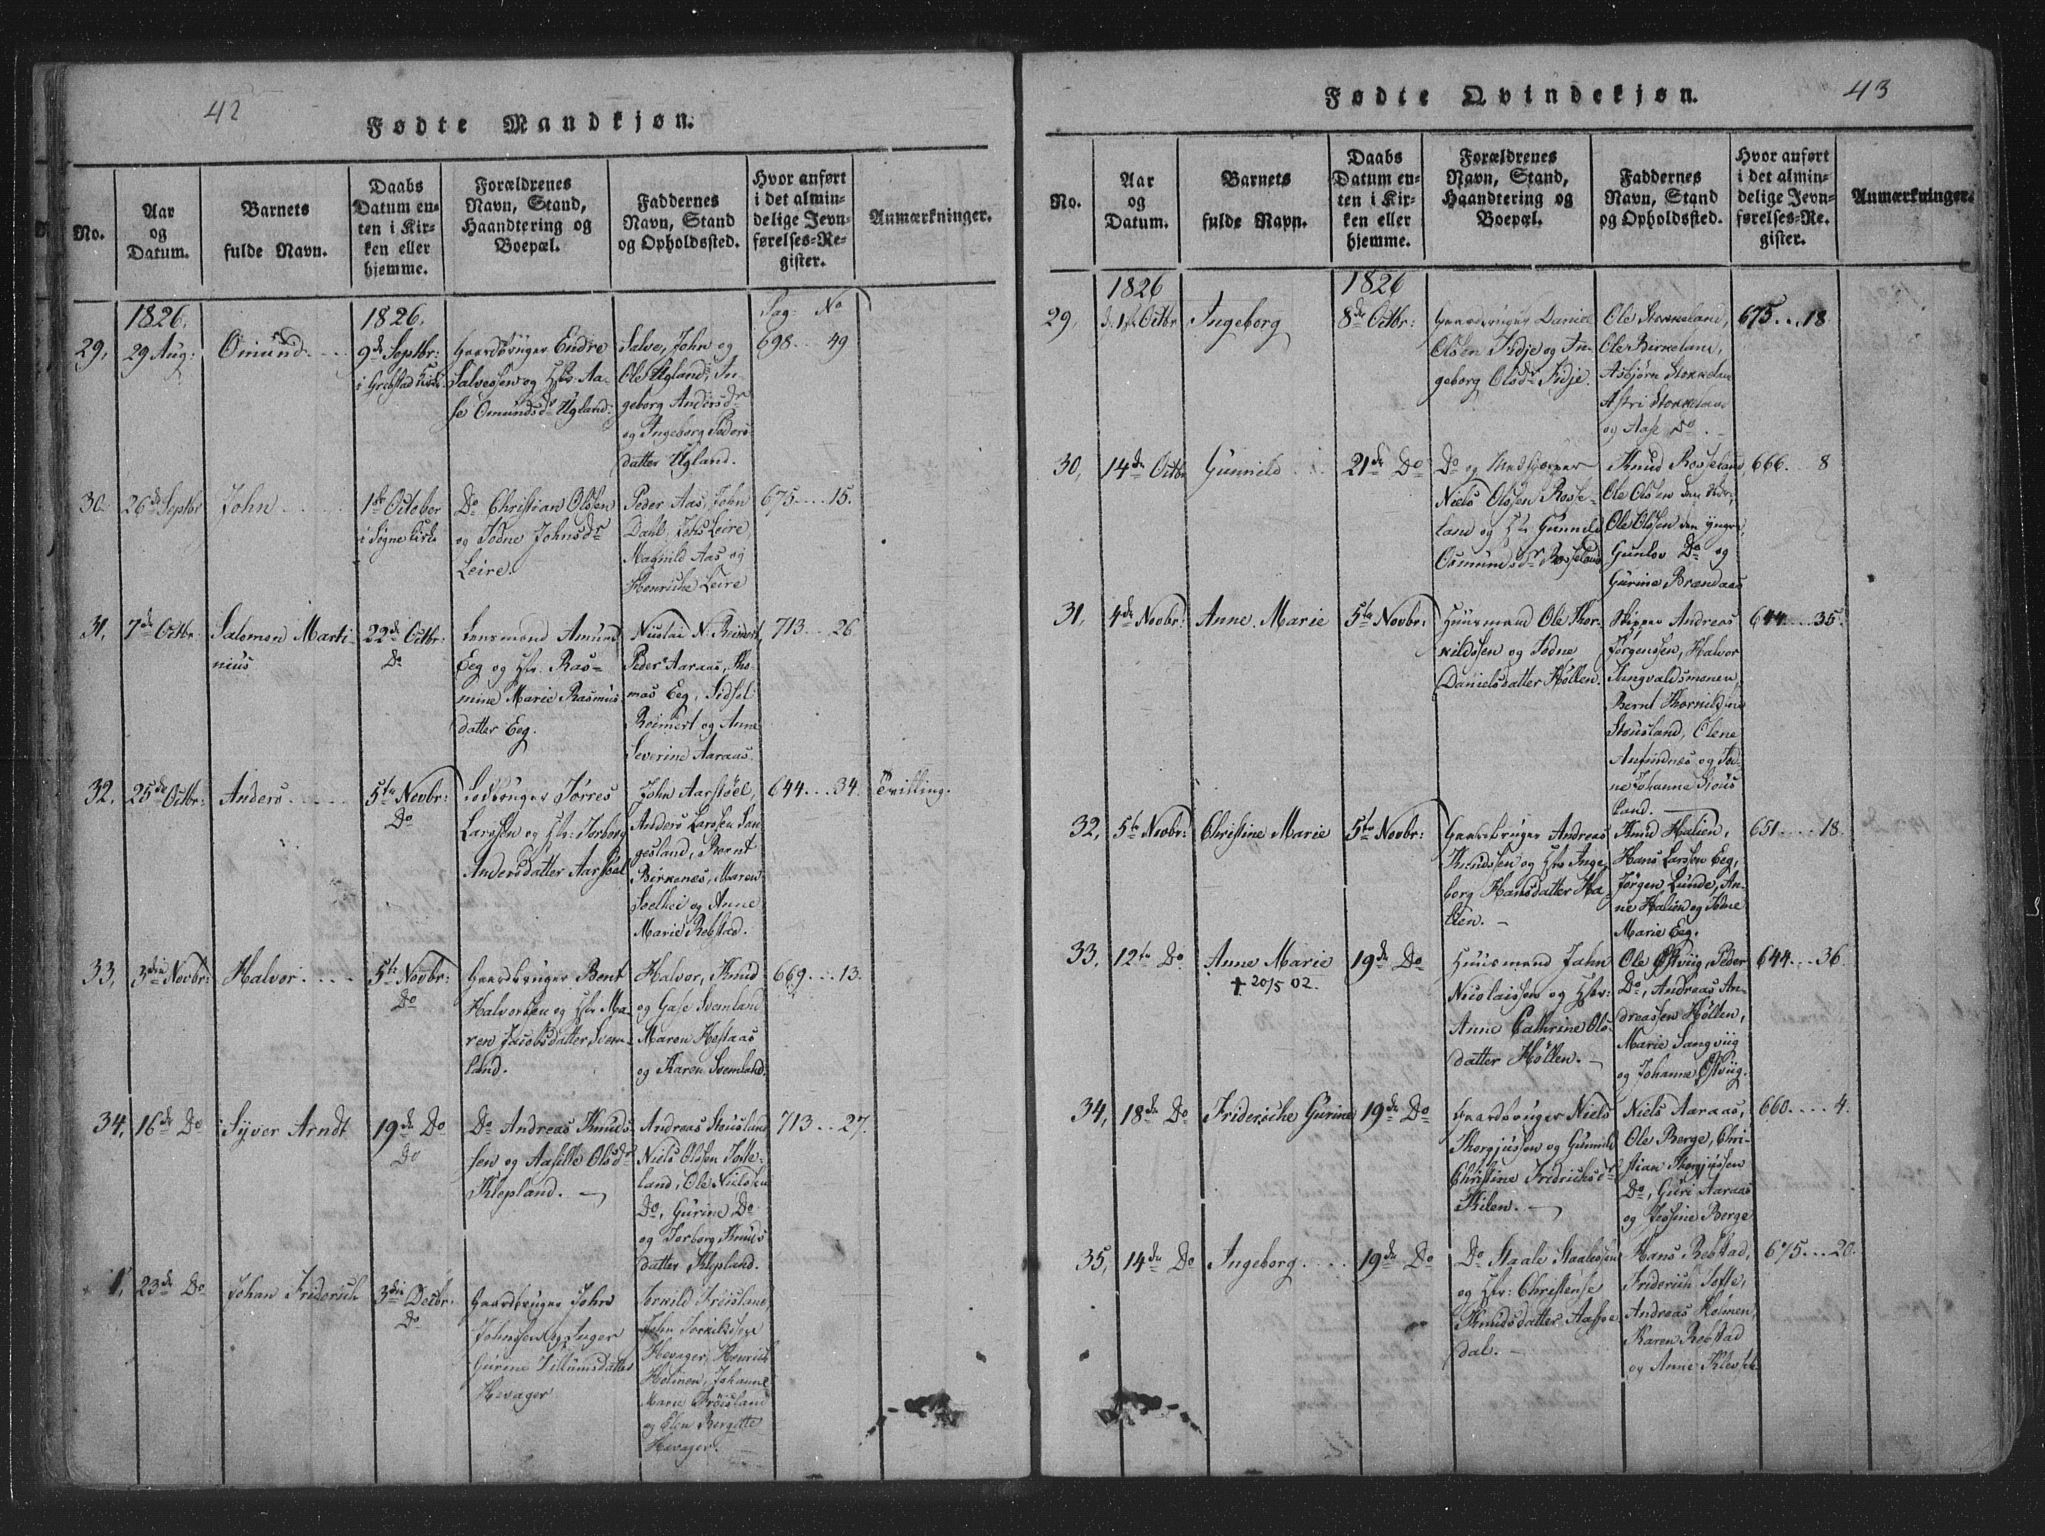 42
Fødte Mandkjøn.
No.
Aar
og
Datum.
Barnets
fulde Navn.
Daabs
Datum en-
ten i Kir-
ken eller
hjemme.
Forældrenes
Navn, Stand,
Haandtering og
Boepæl.
Faddernes
Navn, Stand
og Opholdssted.
Hvor anført
i det almin-
delige Jevn-
førelses-Re-
gister.
Anmærkninger.
1826.
1826.
Pag: No
29,
29 Aug:
Omund
9de Septbr:
i Grebstad Kirke
Gaardbruger Endre
Salvesen og Hstr Aa-
se Omundsdr Ugland:
Salve, John og
Ole Ugland, In-
geborg Andersdr
og Ingeborg Peders-
datter Ugland.
698 49
30.
26de Septbr
John
1ste October
i Søgne Kirke
Do Christian Olsen
og Todne Johnsdr
Leire.
Peder Aas, John
Dahl, Johs Leire,
Magnild Aas og
Henriche Leire
675 15.
31,
7de Octbr:
Salomon Marti-
nius
22de Octbr:
Do
Lensmand Amund
Eeg og Hstr. Ras-
mine Marie Rasmus-
datter Eeg.
Nicolai N. Reinert,
Peder Aaraas, Tho-
mas Eeg, Sidsel
Reinert og Anne
Severine Aaraas.
713 26
32,
25de Octbr:
Anders
5te Novbr:
Do
Lodbruger Torres
Larssen og Hstr: Torborg
Andersdatter Aarstøel
John Aarstøel,
Anders Larssen Lan-
gesland, Bernt
Birkenes, Maren
Soelhei og Anne
Marie Rebstad.
644 34.
Tvilling.
33,
3die Novbr:
Halvor
5te Novbr:
Do
Gaardbruger Bent
Halvorsen og Hstr Ma-
ren Jacobsdatter Svem-
land.
Halvor, Knud
og Gase Svemland
Maren Hestaas
og Karen Svemland.
669 13.
34,
16de Do
Syver Arndt
19de Do
Do
Do Andreas Knud-
sen og Aasille Olsdr
Klepland.
Andreas Stousland
Niels Olsen Tofte-
land, Ole Nielsen
Do, Gurine Do
og Torborg Knuds-
datter Klepland.
713 27.
1,
23de Do
Johan Friderich
3die Decbr.
Do
Gaardbruger John
Johnsen og Inger
Gurine Tellumsdatter
Hevager
Torkild Trøisland,
John Torkildssen
Hevager, Henrich
Holmen, Johanne
Marie Trøisland
og Elen Bergitte
Hevager.
43
Fødte Qvindekjøn.
No.
Aar
og
Datum.
Barnets
fulde Navn.
Daabs
Datum en-
ten i Kir-
ken eller
hjemme.
Forældrenes
Navn, Stand,
Haandtering og
Boepæl.
Faddernes
Navn, Stand
og Opholdssted.
Hvor anført
i det almin-
delige Jevn-
førelses-Re-
gister.
Anmærkninger.
1826
1826
29,
d. 1ste Octbr
Ingeborg
8de Octbr:
Gaardbruger Daniel
Olsen Tidje og In-
geborg Olsdr Tidje.
Ole Stokkeland,
Ole Birkeland,
Asbjørn Stokkeland
Astri Stokkeland
og Aase Do.
675 18.
30,
14de Octbr
Gunnild
21de Do
Do og Medhjelper
Niels Olsen Rosse-
land og Hstr Gunnild
Osmundsdr Rosseland
Knud Rosseland,
Ole Olsen den ældr:
Ole Olsen den yngre,
Gunlov Do og
Gurine Brændaas
666 8
31,
4de Novbr:
Anne Marie
5te Novbr:
Huusmand Ole Thor-
kildssen og Todne
Danielsdatter Høllen.
Skipper Andreas
Jørgenssen, Halvor
Tingvaldsmonen,
Bernt Thorkildsen
Stousland, Olene
Amfindnæs og Tod-
ne Johanna Stous-
land.
644 35.
32,
5te Novbr:
Christine Marie
5te Novbr:
Gaardbruger Andreas
Knudssen og Hstr Inge-
borg Hansdatter Ha-
lien.
Knud Halien,
Hans Larssen Eeg,
Jørgen Lunde, An-
ne Halien og Todne
Marie Eeg.
651 18.
33,
12te Do
Anne Marie
✝ 20/5 02.
19de Do
Huusmand John
Nicolaissen og Hstr:
Anne Cathrine Ols-
datter Høllen.
Ole Østviig, Peder
Do, Andreas An-
dreassen Høllen,
Marie Langviig
og Johanne Østviig.
644 36.
34,
18de Do
Friderische Gurine
19de Do
Gaardbruger Niels
Thorgjussen og Gunnild
Christine Fredrichsdr
Kilen.
Niels Aaraas,
Ole Berge, Chri-
stian Thorgjussen
Do, Guri Aaraas
og Jessine Berge
660 4.
35,
14de Do
Ingeborg
19de Do
Do Staale Staalesen
og Hstr: Christense
Knudsdatter Aaspe-
dal.
Hans Rebstad,
Friderich Tofte,
Andreas Holmen,
Karen Rebstad
og Anne Kleveland
675 20.